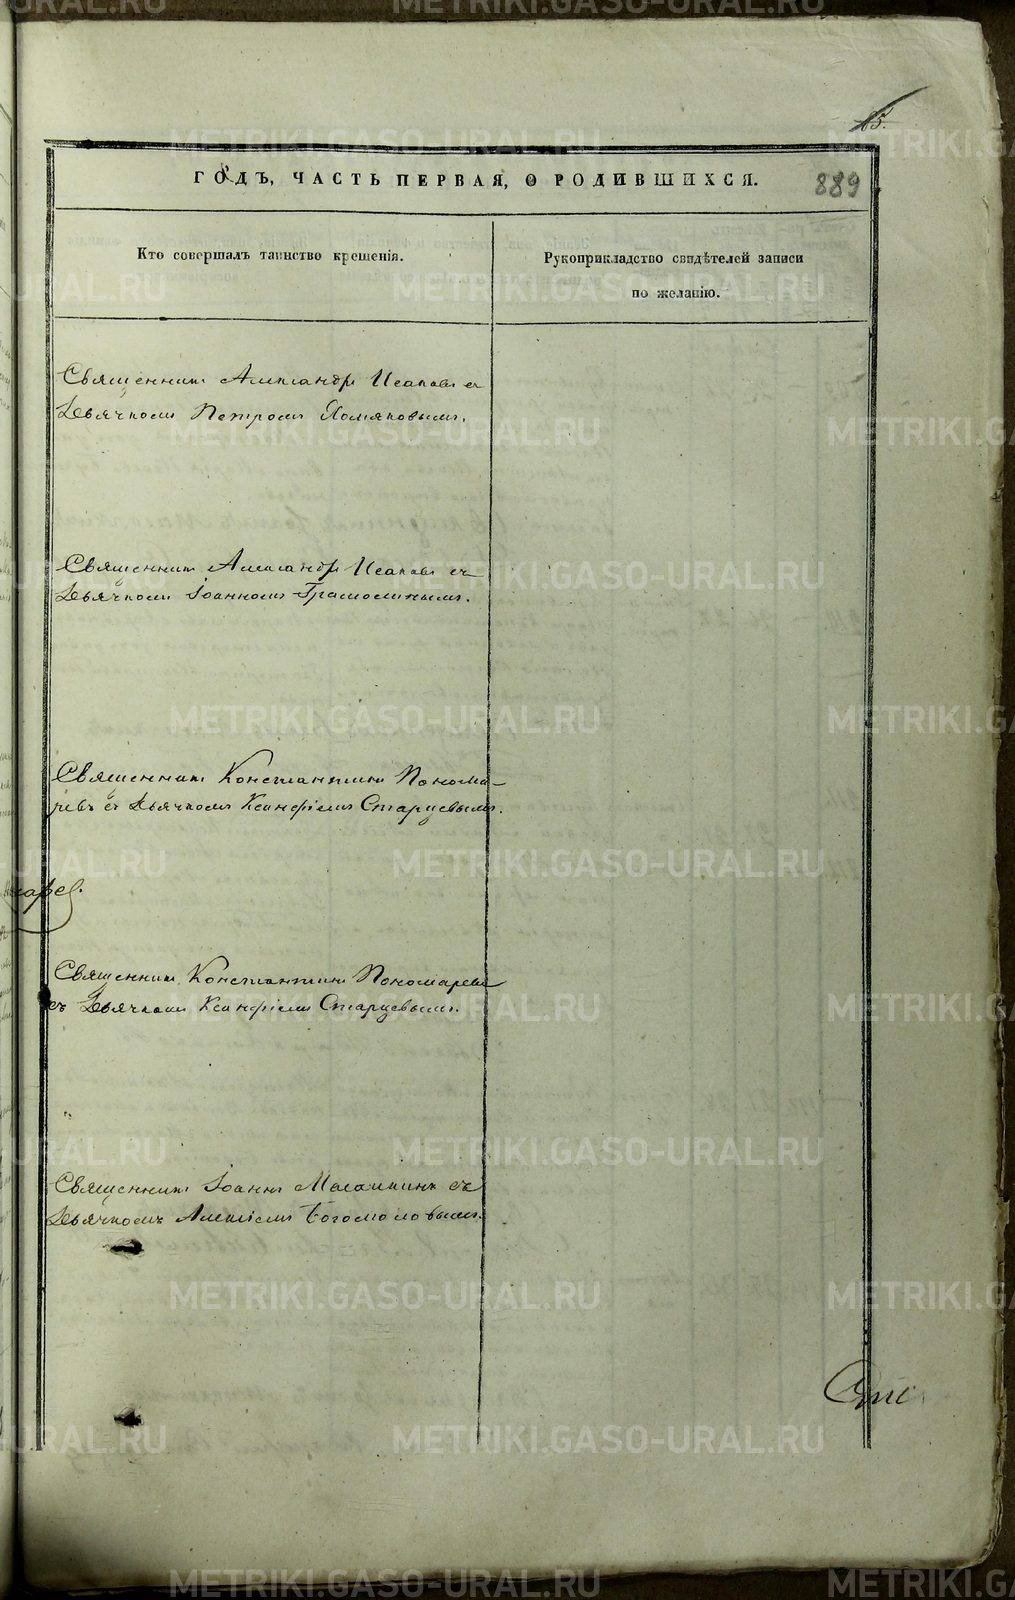 85.
ГОДЪ, ЧАСТЬ ПЕРВАЯ, О РОДИВШИХСЯ.
889
Кто совершалъ таинство крещенія.
Рукоприкладство свидѣтелей записи
по желанію.
Священникъ Александръ Исаковъ съ
Дьячкомъ Петромъ Хомяковымъ.
Священникъ Александръ Исаковъ съ
Дьячкомъ Іоанномъ Грамолинымъ.
Священникъ Константинъ Понома-
ревъ съ Дьячкомъ Ксанфіемъ Старцевымъ.
Священникъ Константинъ Пономаревъ
съ Дьячкомъ Ксанфіемъ Старцевымъ.
Священникъ Іоаннъ съ
Дьячкомъ Алексіемъ Богомоловымъ.
METRIKI.GASO-URAL.RU